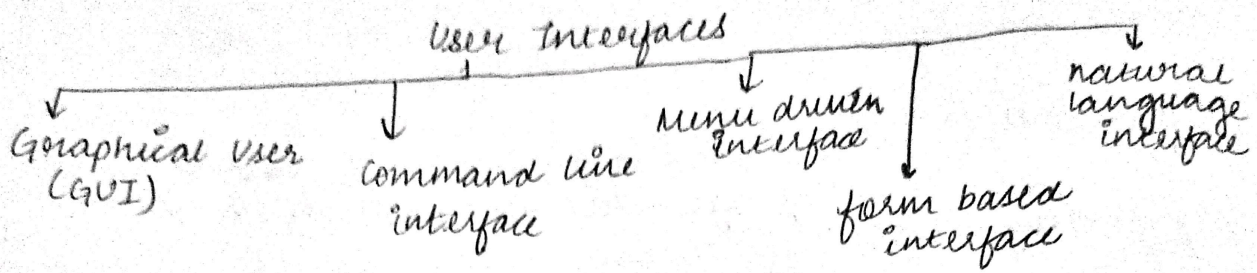 User Interfaces
Graphical User
(GUI)
Command line
interface
Menu driven
interface
form based
interface
natural
language
interface